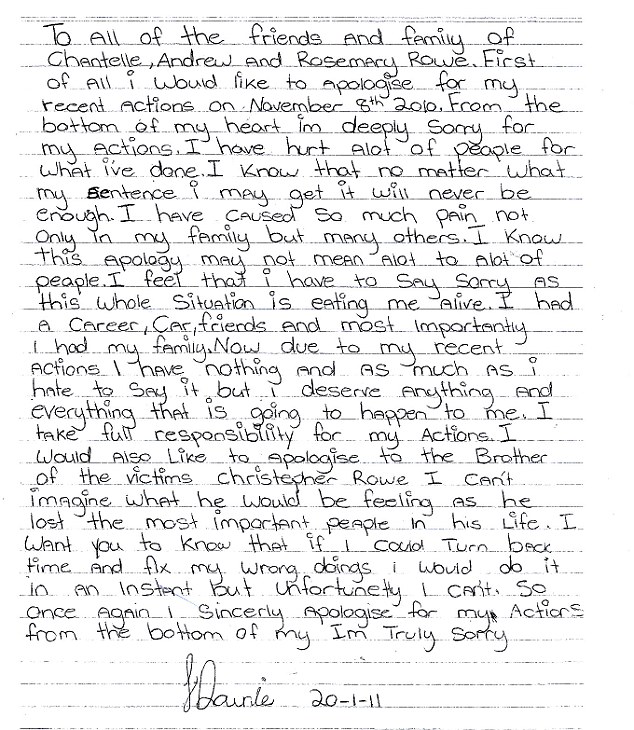 To All of the friends And family of
Chantelle, Andrew And Rosemary Rowe. First
of All i would like to Apologise for my
recent Actions on November 8th 2010. From the
bottom of my heart im deeply sorry for
my Actions. I have hurt Alot of people for
what i've done. I know that no matter what
my sentence i may get it will never be
enough. I have caused so much pain not
only in my family but many others. I know
this Apology may not mean Alot to Alot of
people. I feel that i have to say sorry as
this whole situation is eating me alive. I had
A Career, Car, friends And most importantly
I had my family. Now due to my recent
Actions I have nothing and as much as i
hate to say it but i deserve anything and
everything that is going to happen to me. I
take full responsibility for my Actions. I
would Also Like to Apologise to the Brother
of the victims Christopher Rowe I can't
imagine what he would be feeling as he
lost the most important people in his Life. I
want you to know that if I could Turn back
time and fix my wrong doings i would do it
in an instant but unfortunetly I can't. So
once Again I sincerly Apologise for my Actions
from the bottom of my Im Truly sorry
20-1-11